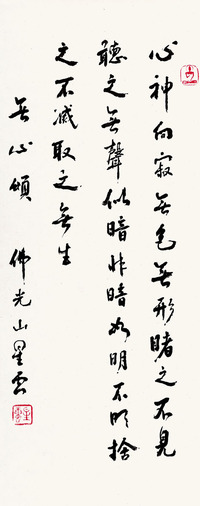 心神向寂無色無形睹之不見
聽之無聲似暗非暗如明不明捨
之不滅取之無生
無心頌 佛光山星雲